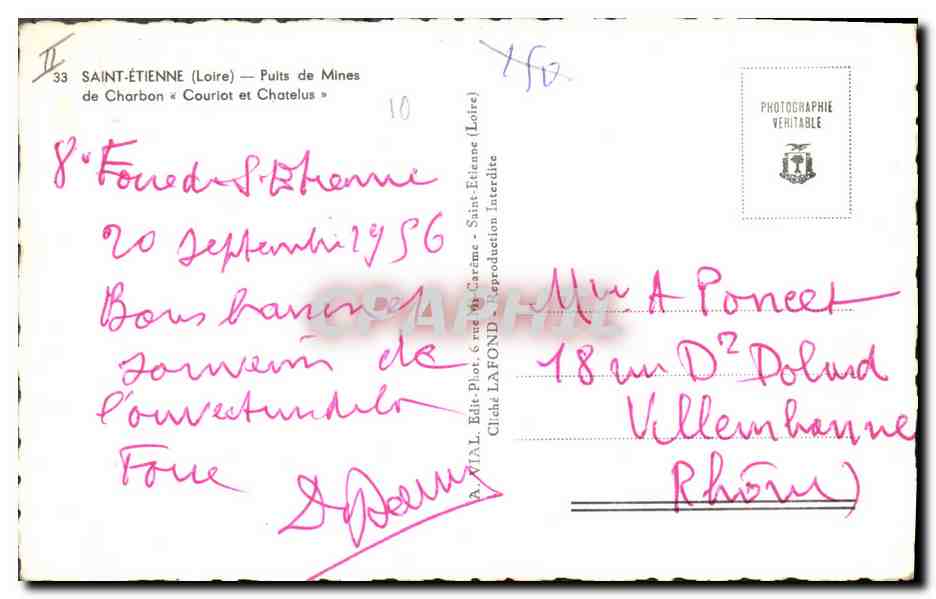 II
33 SAINT-ÉTIENNE (Loire) — Puits de Mines
de Charbon « Couriot et Chatelus »
10
150
PHOTOGRAPHIE
VÉRITABLE
8e Foire de St-Etienne
20 septembre 1956
Bons baisers et
souvenirs de
l'ouverture de la
Foire
A. VIAL, Edit-Phot, 6 rue Mi-Carême - Saint-Etienne (Loire)
Cliché LAFOND - Reproduction Interdite
CPAPHIL
A Poncet
18 rue Dr Dolard
Villeurbanne
Rhône)